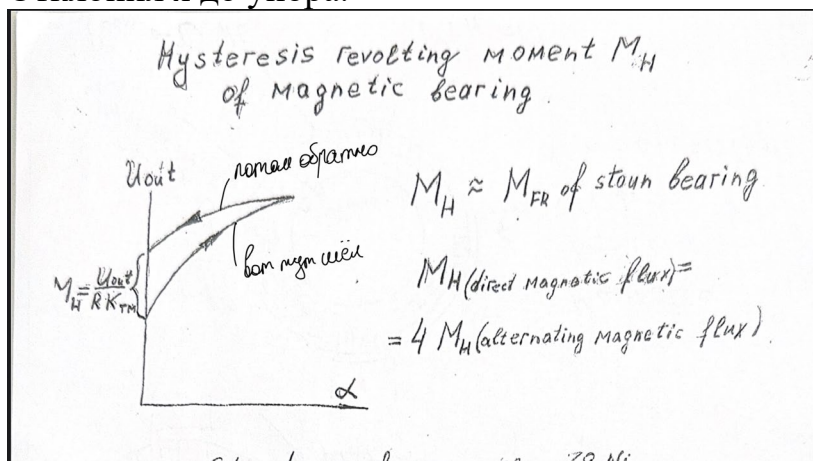 до упора.
Hysteresis revolting moment M_H
of magnetic bearing
Uout
потом обратно
вот тут шёл
M_H = Uout / R K_TM
α
M_H ≈ M_FR of stoun bearing
M_H (direct magnetic flux) =
= 4 M_H (alternating magnetic flux)